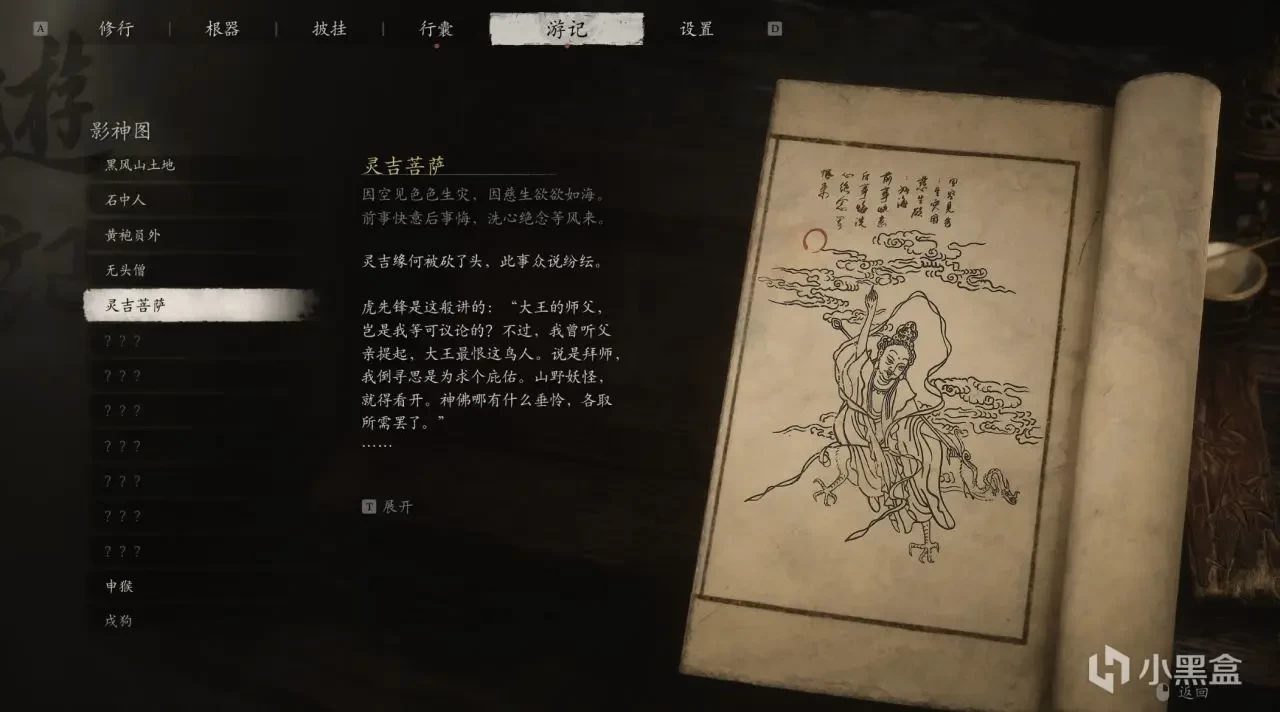 A 修行 根器 披挂 行囊 游记 设置 D
遊記
影神图
黑风山土地
石中人
黄袍员外
无头僧
灵吉菩萨
？？？
？？？
？？？
？？？
？？？
？？？
？？？
申猴
戌狗
灵吉菩萨
因空见色色生灾，因慈生欲欲如海。
前事快意后事悔，洗心绝念等风来。
灵吉缘何被砍了头，此事众说纷纭。
虎先锋是这般讲的：“大王的师父，
岂是我等可议论的？不过，我曾听父
亲提起，大王最恨这鸟人。说是拜师，
我倒寻思是为求个庇佑。山野妖怪，
就得看开。神佛哪有什么垂怜，各取
所需罢了。”
……
T 展开
小黑盒
返回